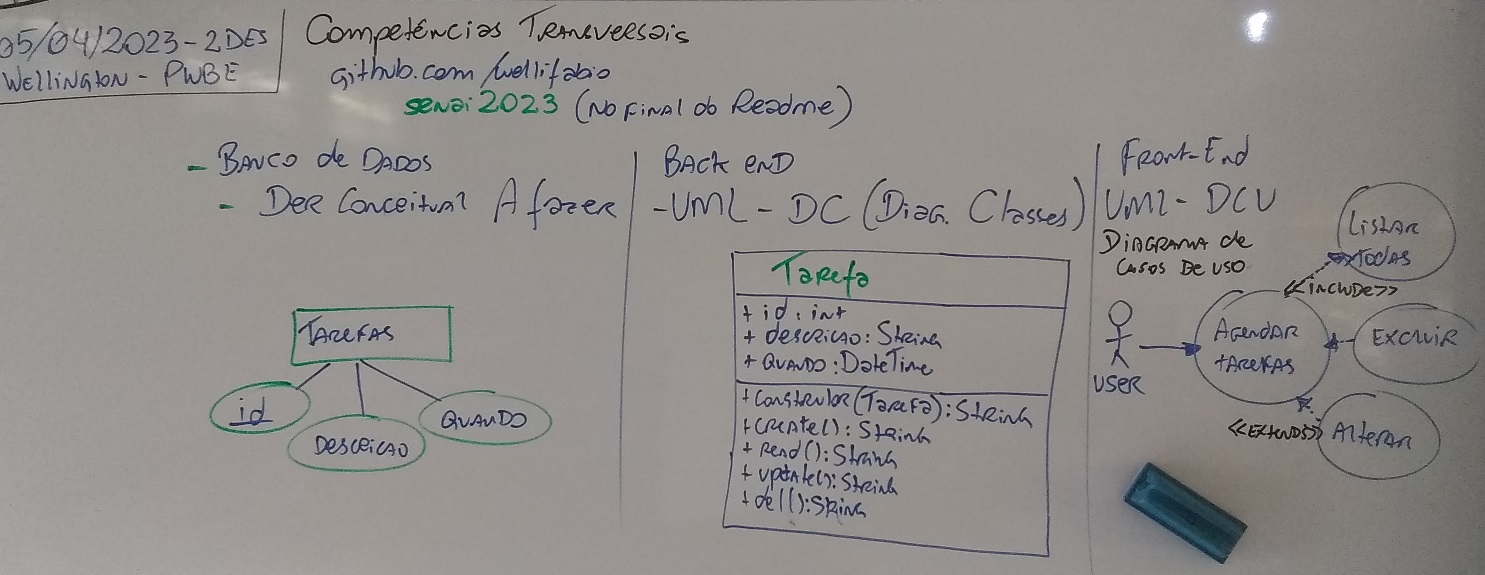 05/04/2023-2DES
Wellington - PWBE
Competências Transversais
github.com/wellifabio
senai2023 (no final do Readme)
- Banco de Dados
- Der Conceitual A fazer
TAREFAS
id
Descricao
QUANDO
Back end
-UML - DC (Diag. Classes)
Tarefa
+ id: int
+ descricao: String
+ QUANDO: DateTime
+ construtor(Tarefa): String
+ create(): String
+ read(): String
+ update(): String
+ del(): String
Front-End
UML - DCU
Diagrama de
Casos de uso
User
Agendar
tarefas
<<include>>
Listar
Todas
Excluir
<<Extends>>
Alterar